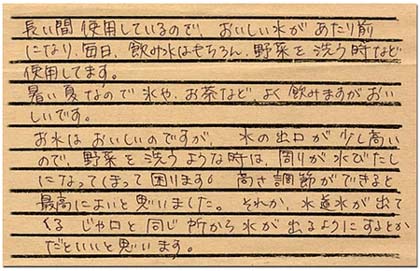 長い間使用しているので、おいしい水があたり前
になり、毎日、飲み水はもちろん、野菜を洗う時など
使用してます。
暑い夏なので氷や、お茶など、よく飲みますがおい
しいです。
お水はおいしいのですが、水の出口が少し高い
ので、野菜を洗うような時は、周りが水びたし
になってしまって困ります。高さ調節ができると
最高によいと思いました。それか、水道水が出て
くるじゃ口と同じ所から水が出るようにするとか
だといいと思います。